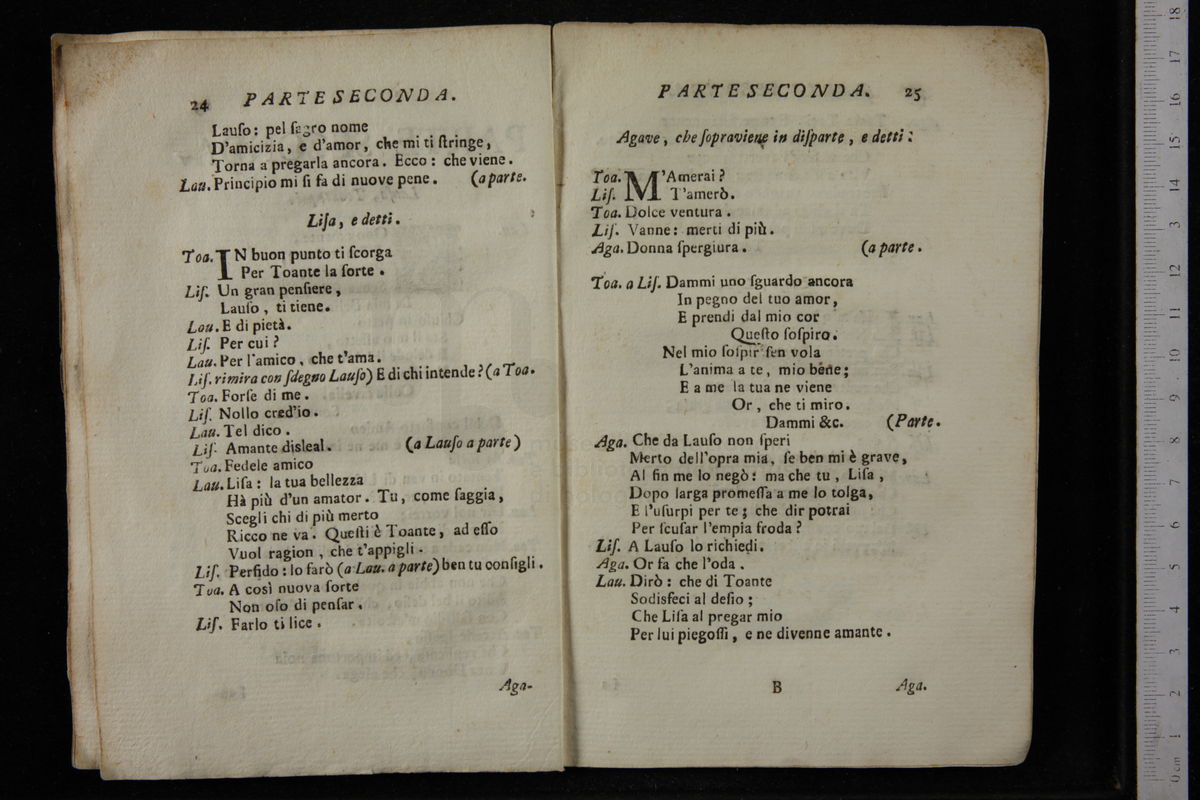 24 PARTE SECONDA.
Lauſo: pel ſagro nome
D'amicizia, e d'amor, che mi ti ſtringe,
Torna a pregarla ancora. Ecco: che viene.
Lau. Principio mi ſi fa di nuove pene. (a parte.
Liſa, e detti.
Toa. IN buon punto ti ſcorga
Per Toante la ſorte.
Liſ. Un gran penſiere,
Lauſo, ti tiene.
Lau. E di pietà.
Liſ. Per cui?
Lau. Per l'amico, che t'ama.
Liſ. rimira con ſdegno Lauſo) E di chi intende? (a Toa.
Toa. Forſe di me.
Liſ. Nollo cred'io.
Lau. Tel dico.
Liſ. Amante disleal. (a Lauſo a parte)
Toa. Fedele amico
Lau. Liſa: la tua bellezza
Hà più d'un amator. Tu, come ſaggia,
Scegli chi di più merto
Ricco ne va. Queſti è Toante, ad eſſo
Vuol ragion, che t'appigli.
Liſ. Perfido: lo farò (a Lau. a parte) ben tu conſigli.
Toa. A così nuova ſorte
Non oſo di penſar.
Liſ. Farlo ti lice.
Aga-
PARTE SECONDA. 25
Agave, che ſopraviene in diſparte, e detti:
Toa. M'Amerai?
Liſ. T'amerò.
Toa. Dolce ventura.
Liſ. Vanne: merti di più.
Aga. Donna ſpergiura. (a parte.
Toa. a Liſ. Dammi uno ſguardo ancora
In pegno del tuo amor,
E prendi dal mio cor
Queſto ſoſpiro.
Nel mio ſoſpir ſen vola
L'anima a te, mio bene;
E a me la tua ne viene
Or, che ti miro.
Dammi &c. (Parte.
Aga. Che da Lauſo non ſperi
Merto dell'opra mia, ſe ben mi è grave,
Al fin me lo negò: ma che tu, Liſa,
Dopo larga promeſſa a me lo tolga,
E l'uſurpi per te; che dir potrai
Per ſcuſar l'empia froda?
Liſ. A Lauſo lo richiedi.
Aga. Or fa che l'oda.
Lau. Dirò: che di Toante
Sodisfeci al deſio;
Che Liſa al pregar mio
Per lui piegoſſi, e ne divenne amante.
B Aga.
0 cm 1 2 3 4 5 6 7 8 9 10 11 12 13 14 15 16 17 18